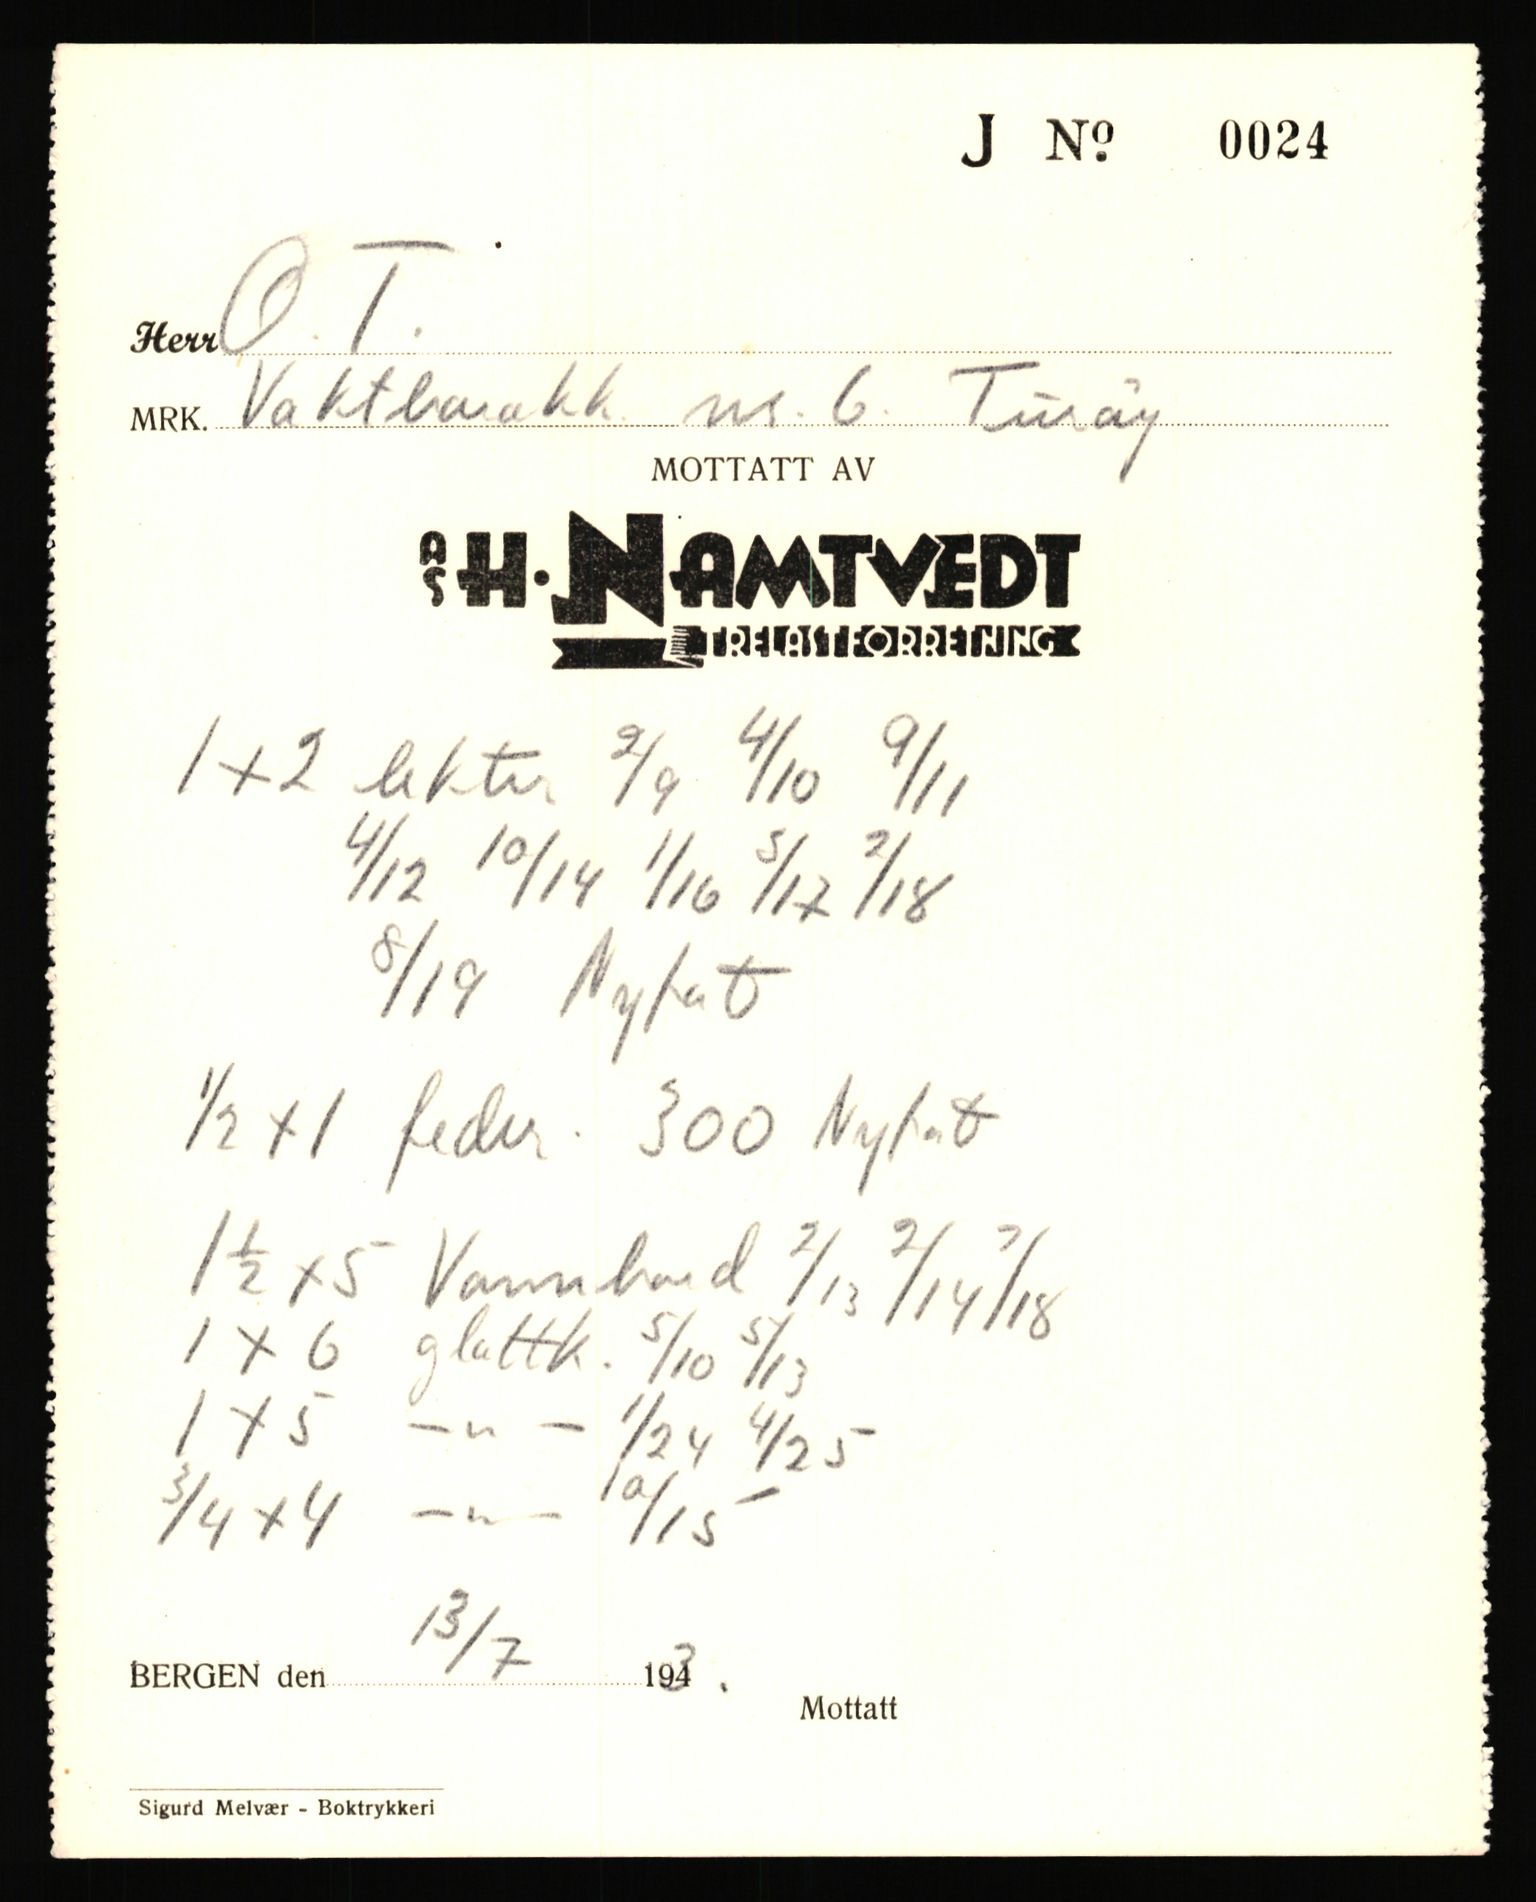 J Nº 0024
Herr O. T.
MRK. Vaktbarakk nr. 6. Turöy
MOTTATT AV
AS H. NAMTVEDT
TRELASTFORRETNING
1 x 2 lekter 2/9 4/10 9/11
4/12 10/14 1/16 5/17 2/18
8/19
1/2 x 1 feder. 300
1 1/2 x 5 Vannbord 2/13 2/14 7/18
1 x 6 glattk. 5/10 5/13
1 x 5 -"- 1/24 4/25
3/4 x 4 -"- 10/15
BERGEN den 13/7 1943.
Mottatt
Sigurd Melvær - Boktrykkeri